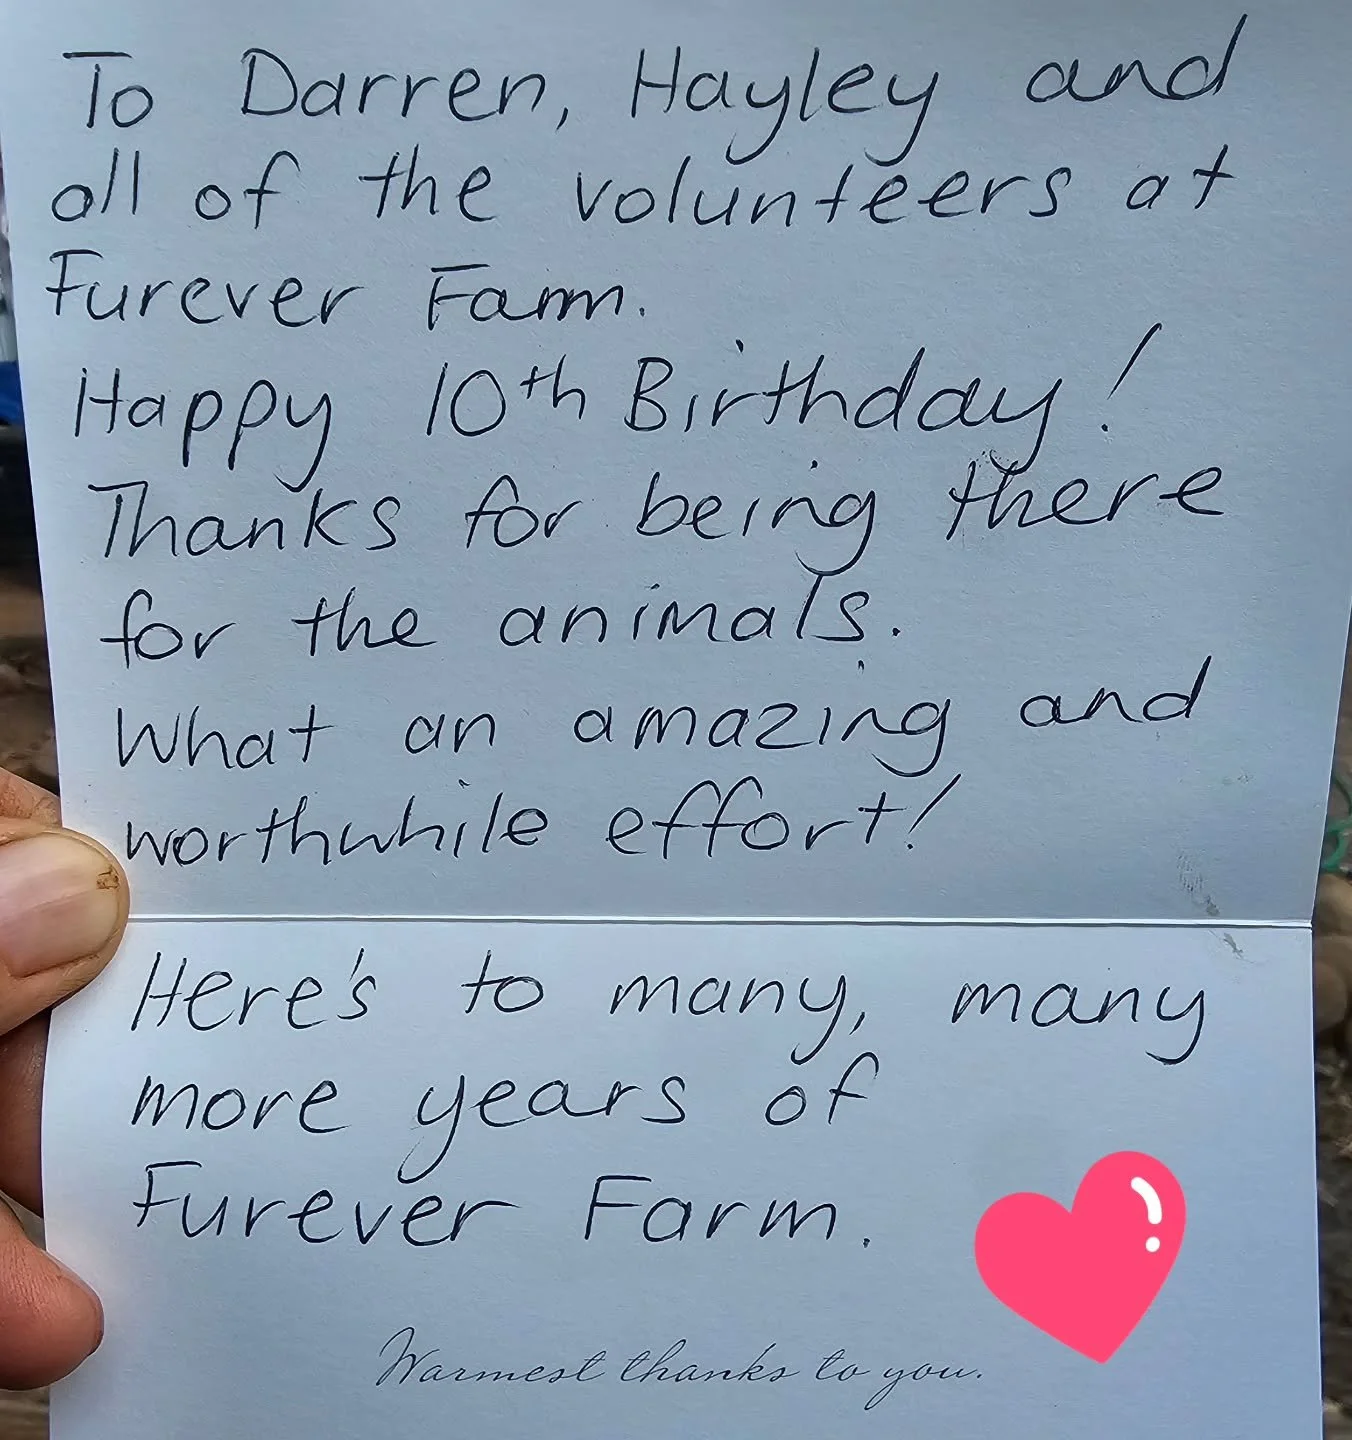 To Darren, Hayley and
all of the volunteers at
Furever Farm.
Happy 10th Birthday!
Thanks for being there
for the animals.
What an amazing and
worthwhile effort!
Here's to many, many
more years of
Furever Farm.
Warmest thanks to you.